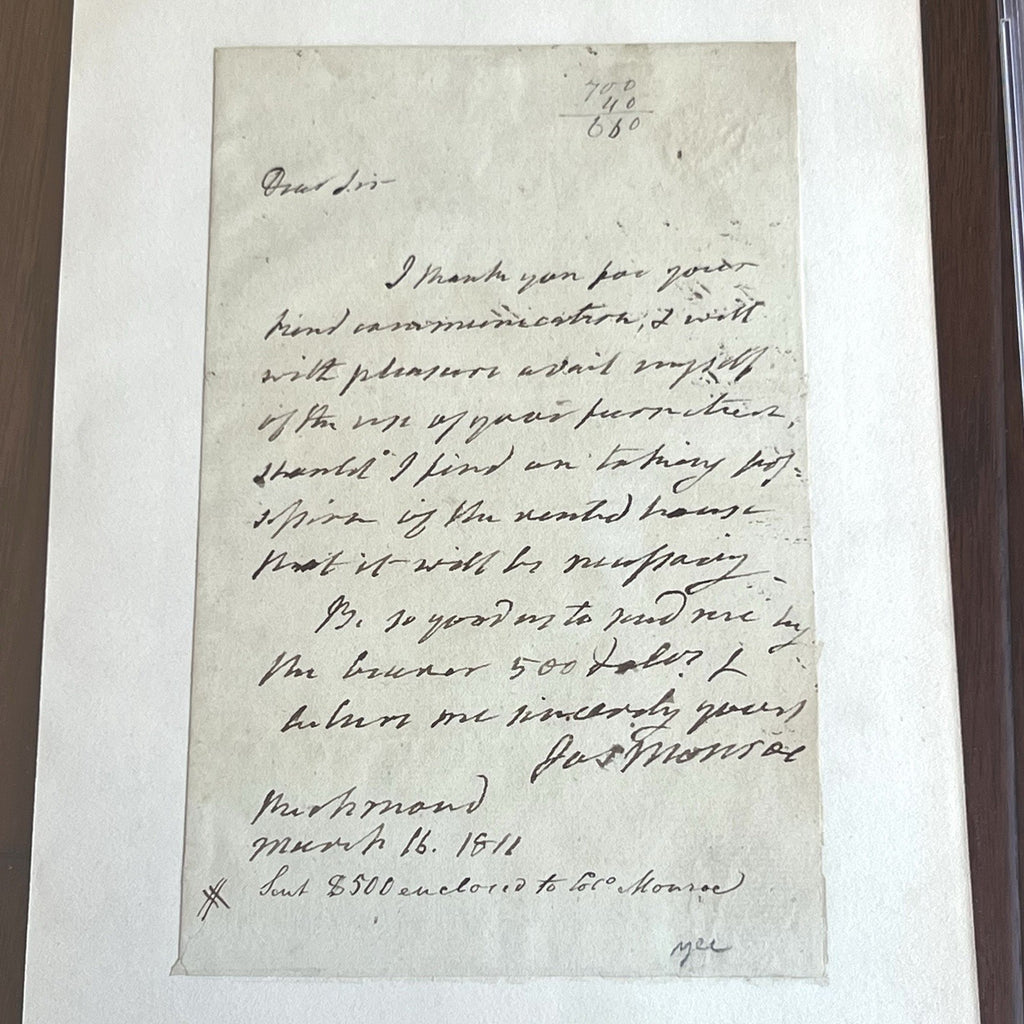 700
40
660
Dear Sir
I thank you for your
kind communication, & will
with pleasure avail myself
of the use of your furniture,
should I find on taking pos=
session of the rented house
that it will be necessary
Be so good as to send me by
the bearer 500 dolrs. &
believe me sincerely yours
Jas Monroe
Richmond
March 16. 1811
Sent $500 enclosed to Colo Monroe